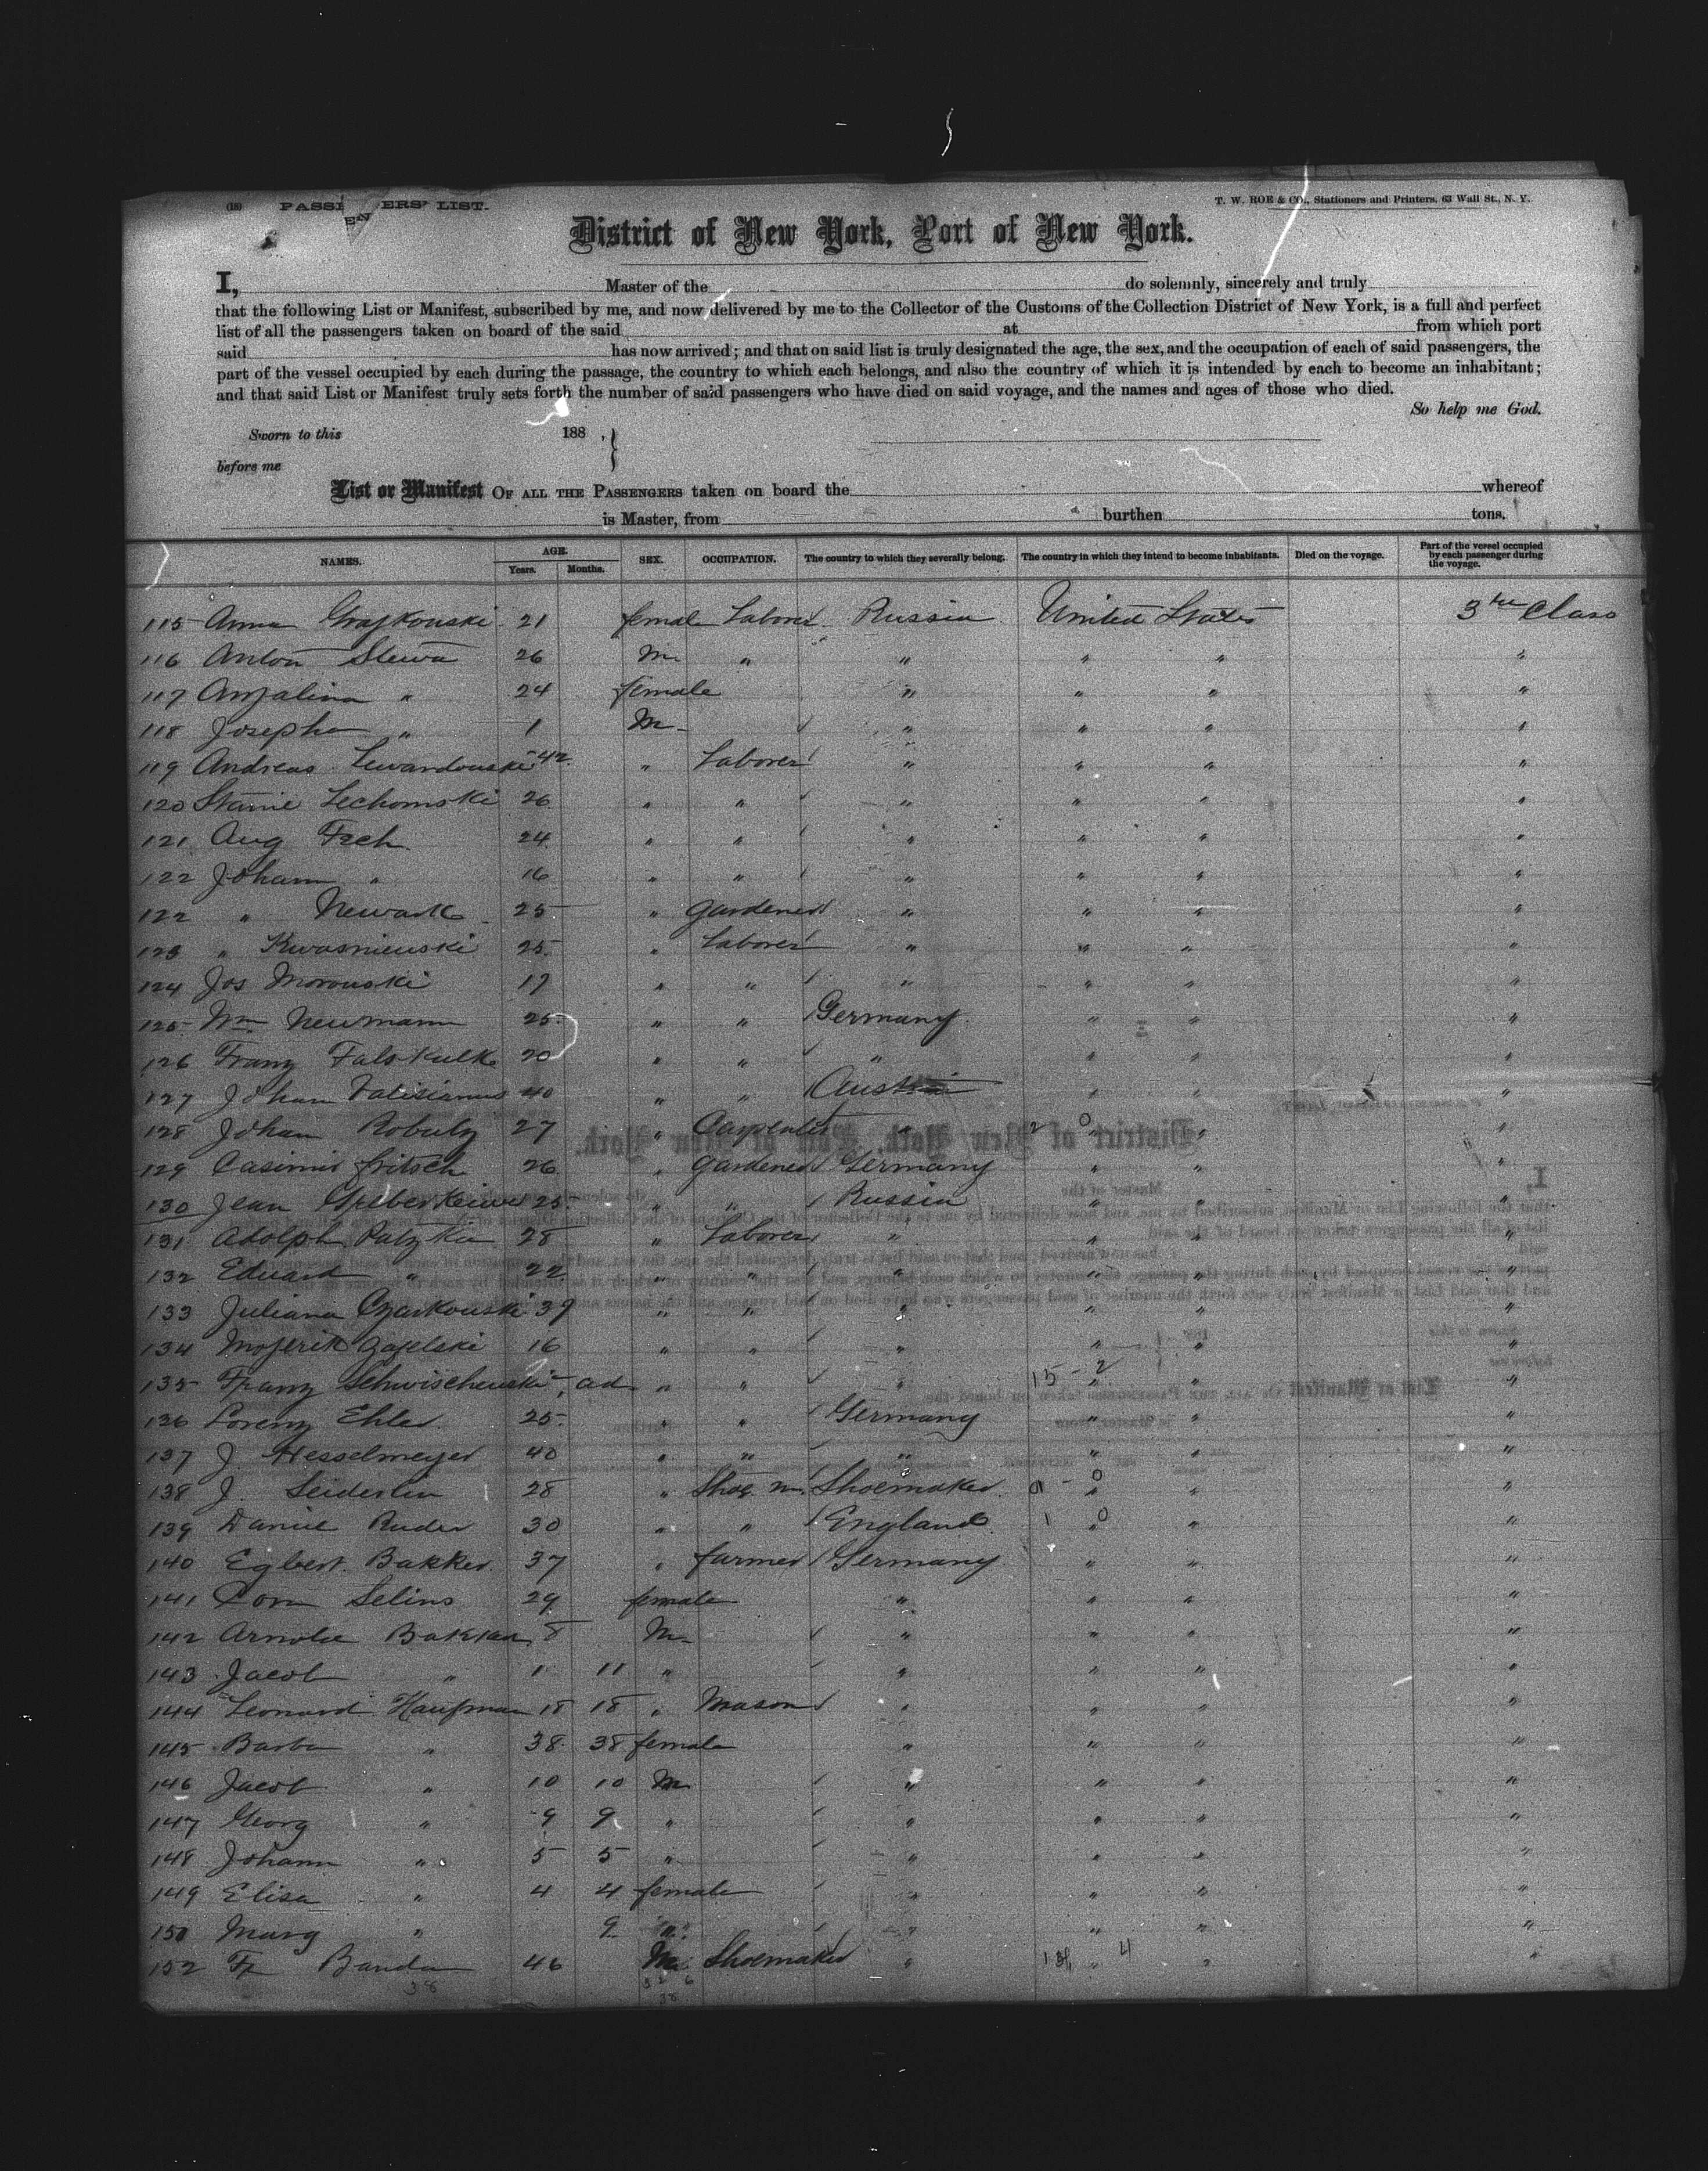 (18) PASSENGERS' LIST. T. W. ROE & CO., Stationers and Printers, 63 Wall St., N. Y.
District of New York, Port of New York.
I, Master of the do solemnly, sincerely and truly
that the following List or Manifest, subscribed by me, and now delivered by me to the Collector of the Customs of the Collection District of New York, is a full and perfect
list of all the passengers taken on board of the said at from which port
said has now arrived; and that on said list is truly designated the age, the sex, and the occupation of each of said passengers, the
part of the vessel occupied by each during the passage, the country to which each belongs, and also the country of which it is intended by each to become an inhabitant;
and that said List or Manifest truly sets forth the number of said passengers who have died on said voyage, and the names and ages of those who died.
So help me God.
Sworn to this 188 ,
before me
List or Manifest OF ALL THE PASSENGERS taken on board the whereof
is Master, from burthen tons.
NAMES. AGE. Years. Months. SEX. OCCUPATION. The country to which they severally belong. The country in which they intend to become inhabitants. Died on the voyage. Part of the vessel occupied by each passenger during the voyage.
115 Anna Grajkouski 21 female Laborer Russia United States 3 Class
116 Anton Slewa 26 M. " " " " "
117 " 24 female " " " "
118 Josepha " 1 M. " " " "
119 Andreas Lewandouski 42 " Laborer " " " "
120 Lechomski 26 " " " " " "
121 Aug 24 " " " " " "
122 Johann " 16 " " " " " "
122 " Newark 25 " Gardener " " " "
123 " Kwasnieuski 25 " Laborer " " " "
124 Jos Morouski 17 " " " " " "
125 Wm Neumann 25 " " Germany " " "
126 Franz 20 " " " " " "
127 Johan 40 " " Austria " " "
128 Johan 27 " Carpenter " 2 0 " "
129 Casimir Fritsch 26 " Gardener Germany " " "
130 Jean 25 " " Russia " " "
131 Adolph Patzkia 28 " Laborer " " " "
132 Eduard " 22 " " " " " "
133 Juliana 39 " " " " " "
134 16 " " " " " "
135 Franz Schwischeuski ad " " " 15 - 2 " "
136 Lorenz Ehler 25 " " Germany " " "
137 J. Hesselmeyer 40 " " " " " "
138 J. Seiderlin 28 " Shoe m. Shoemaker 0 " "
139 Daniel Ruder 30 " " England 1 0 " "
140 Egbert Bakker 37 " farmer Germany " " "
141 Corn Selins 29 female " " " "
142 Bakker 8 M. " " " "
143 Jacob " 1 11 " " " " "
144 Leonard Kaufman 18 18 " Mason " " " "
145 Barba " 38 38 female " " " "
146 Jacob " 10 10 M " " " "
147 Georg " 9 9 " " " " "
148 Johann " 5 5 " " " " "
149 Elisa " 4 4 female " " " "
150 Marg " 9 " " " " "
152 Fr Banda 46 M. Shoemaker " 4 " "
38 32 6
38